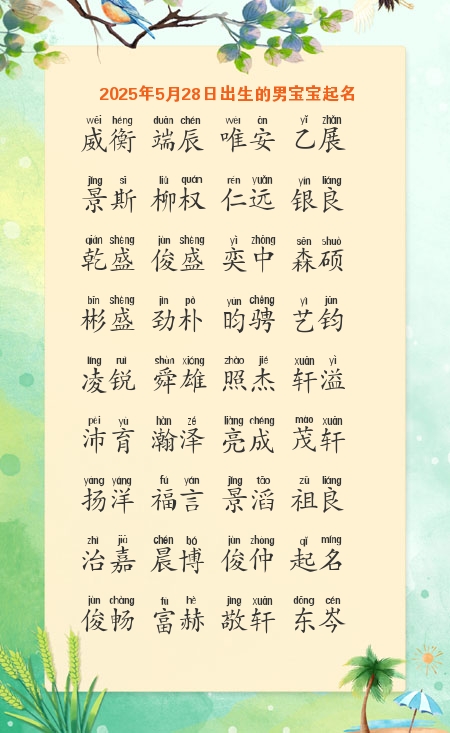 2025年5月28日出生的男宝宝起名
wēi héng duān chén wéi ān yǐ zhǎn
威衡 端辰 唯安 乙展
jǐng sī liǔ quán rén yuǎn yín liáng
景斯 柳权 仁远 银良
qián shèng jùn shèng yì zhōng sēn shuò
乾盛 俊盛 奕中 森硕
bīn shèng jìn pǔ yún chěng yì jūn
彬盛 劲朴 昀骋 艺钧
líng ruì shùn xióng zhào jié xuān yì
凌锐 舜雄 照杰 轩溢
pèi yù hàn zé liàng chéng mào xuān
沛育 瀚泽 亮成 茂轩
yáng yáng fú yán jǐng tāo zǔ liáng
扬洋 福言 景滔 祖良
zhì jiā chén bó jùn zhòng qǐ míng
治嘉 晨博 俊仲 起名
jùn chàng fù hè jìng xuān dōng cén
俊畅 富赫 敬轩 东岑